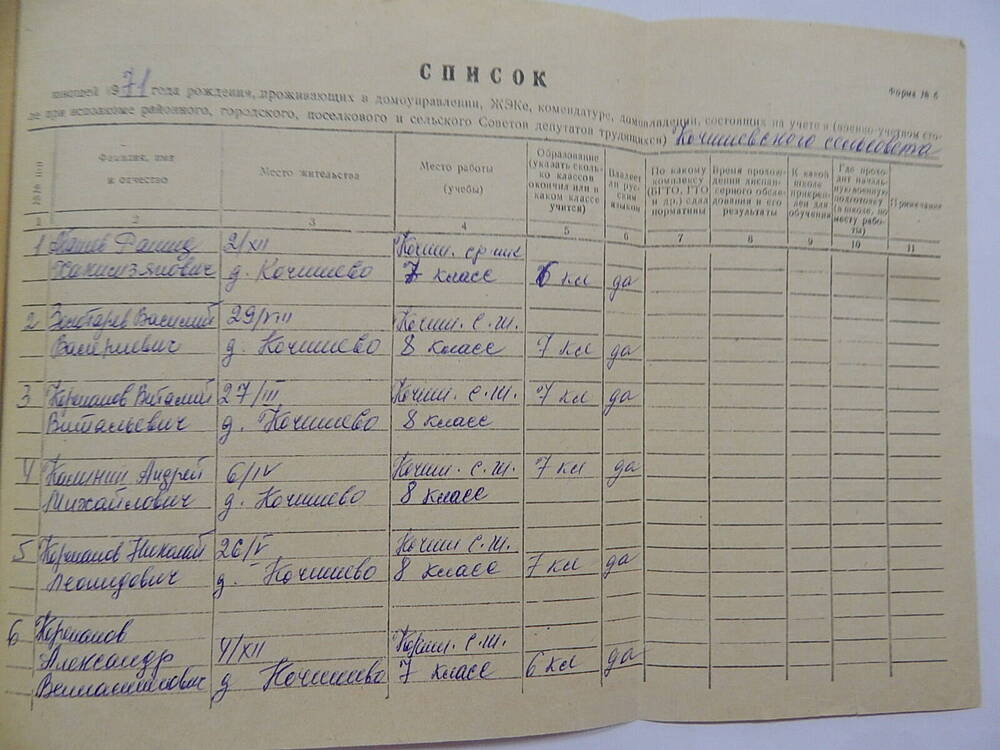 СПИСОК
Форма № 6
юношей 1971 года рождения, проживающих в домоуправлении, ЖЭКе, комендатуре, домовладении, состоящих на учете в (военно-учетном сто-
ле при исполкоме районного, городского, поселкового и сельского Советов депутатов трудящихся) Кочишевского сельсовета
№№ п/п
Фамилия, имя и отчество
Место жительства
Место работы (учебы)
Образование (указать сколько классов окончил или в каком классе учится)
Владеет ли русским языком
По какому комплексу (БГТО, ГТО и др.) сдал нормативы
Время прохождения диспансерного обследования и его результаты
К какой школе прикреплен для обучения
Где проходит начальную военную подготовку (в школе, по месту работы)
Примечание
1 2 3 4 5 6 7 8 9 10 11
1 Рашид 2/XII Кочиш. ср. шк
д. Кочишево 7 класс 6 кл да
2 Золотарев Василий 29/VIII Кочиш. С.Ш.
Валериевич д. Кочишево 8 класс 7 кл да
3 Корепанов Виталий 27/III Кочиш. С.Ш. 7 кл да
Витальевич д. Кочишево 8 класс
4 Калинин Андрей 6/IV Кочиш. С.Ш. 7 кл да
Михайлович д. Кочишево 8 класс
5 Корепанов Николай 26/V Кочиш С.Ш.
Леонидович д. Кочишево 8 класс 7 кл да
6 Корепанов
Александр 4/XII Кочиш. С.Ш.
Вениаминович д Кочишево 7 класс 6 кл да